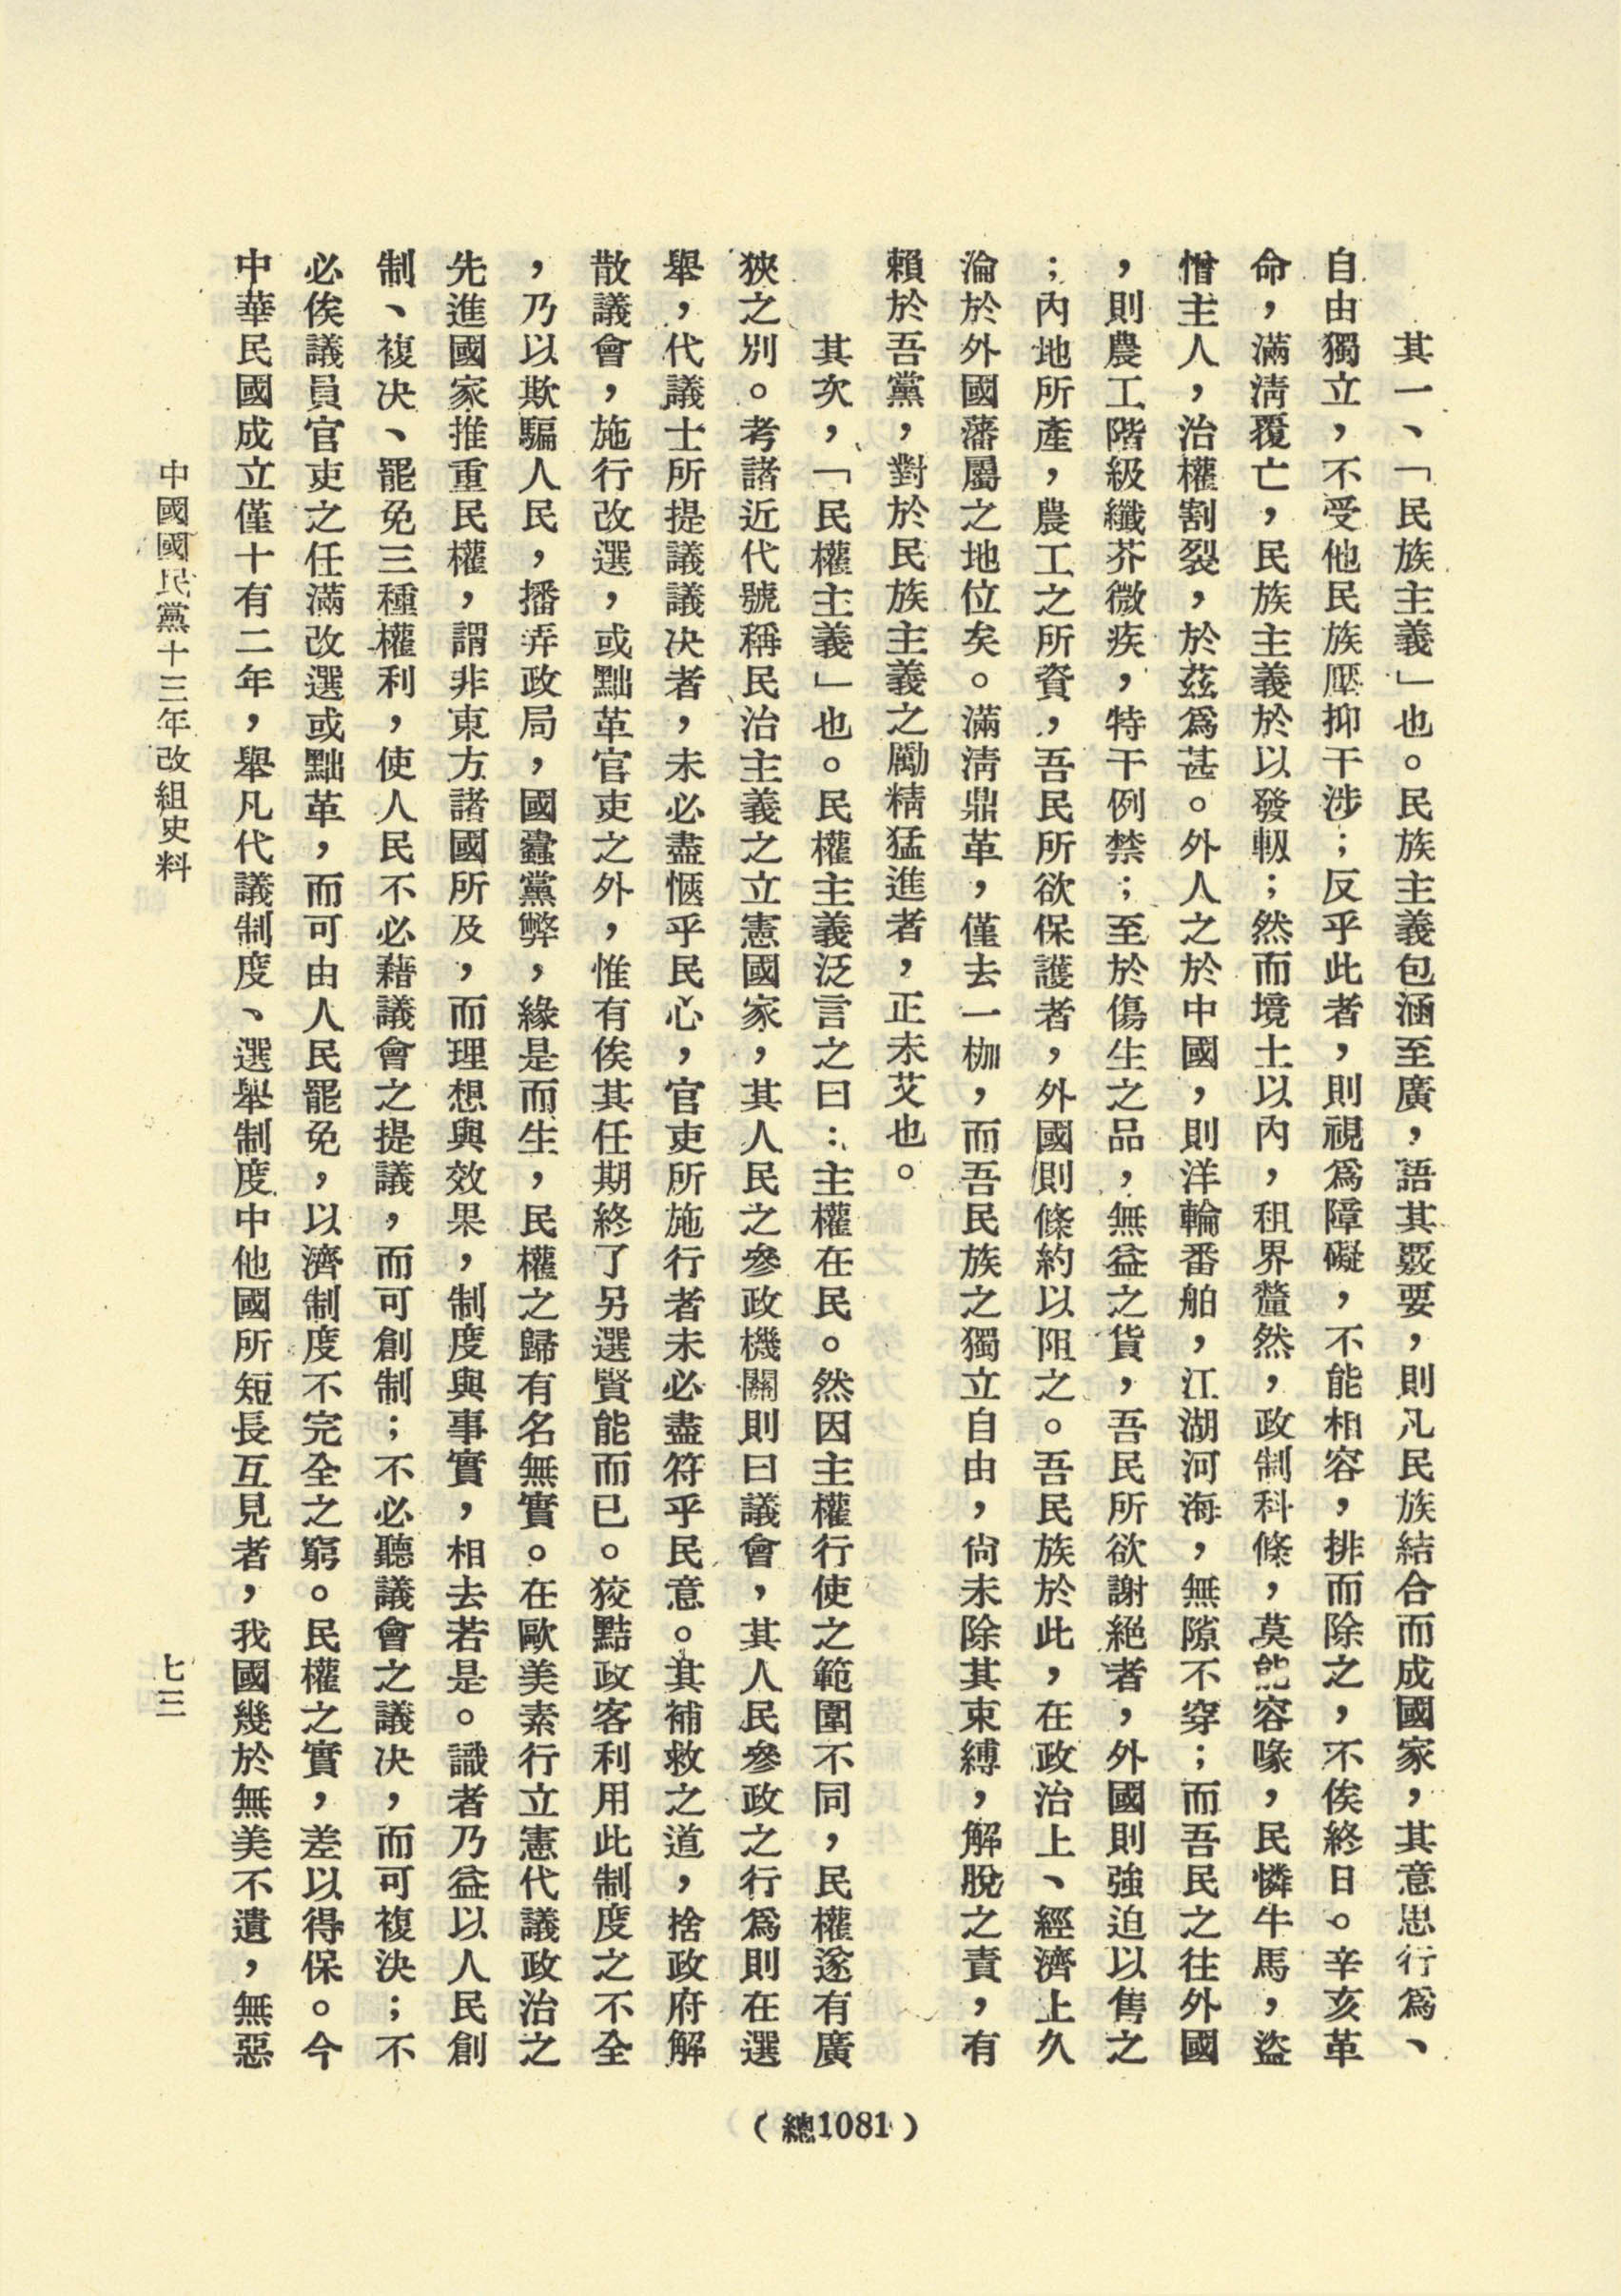 其一、「民族主義」也。民族主義包涵至廣，語其覈要，則凡民族結合而成國家，其意思行爲、
自由獨立，不受他民族壓抑干涉；反乎此者，則視爲障礙，不能相容，排而除之，不俟終日。辛亥革
命，滿淸覆亡，民族主義於以發軔；然而境土以內，租界釐然，政制科條，莫能容喙，民憐牛馬，盜
憎主人，治權割裂，於茲爲甚。外人之於中國，則洋輪番舶，江湖河海，無隙不穿；而吾民之往外國
，則農工階級纖芥微疾，特干例禁；至於傷生之品，無益之貨，吾民所欲謝絕者，外國則強迫以售之
；內地所產，農工之所資，吾民所欲保護者，外國則條約以阻之。吾民族於此，在政治上、經濟上久
淪於外國藩屬之地位矣。滿淸鼎革，僅去一枷，而吾民族之獨立自由，尙未除其束縛，解脫之責，有
賴於吾黨，對於民族主義之勵精猛進者，正未艾也。
其次，「民權主義」也。民權主義泛言之曰：主權在民。然因主權行使之範圍不同，民權遂有廣
狹之別。考諸近代號稱民治主義之立憲國家，其人民之參政機關則曰議會，其人民參政之行爲則在選
舉，代議士所提議議決者，未必盡愜乎民心，官吏所施行者未必盡符乎民意。其補救之道，捨政府解
散議會，施行改選，或黜革官吏之外，惟有俟其任期終了另選賢能而已。狡黠政客利用此制度之不全
，乃以欺騙人民，播弄政局，國蠹黨弊，緣是而生，民權之歸有名無實。在歐美素行立憲代議政治之
先進國家推重民權，謂非東方諸國所及，而理想與效果，制度與事實，相去若是。識者乃益以人民創
制、複决、罷免三種權利，使人民不必藉議會之提議，而可創制；不必聽議會之議决，而可複決；不
必俟議員官吏之任滿改選或黜革，而可由人民罷免，以濟制度不完全之窮。民權之實，差以得保。今
中華民國成立僅十有二年，舉凡代議制度、選舉制度中他國所短長互見者，我國幾於無美不遺，無惡
中國國民黨十三年改組史料
七三
（總1081）